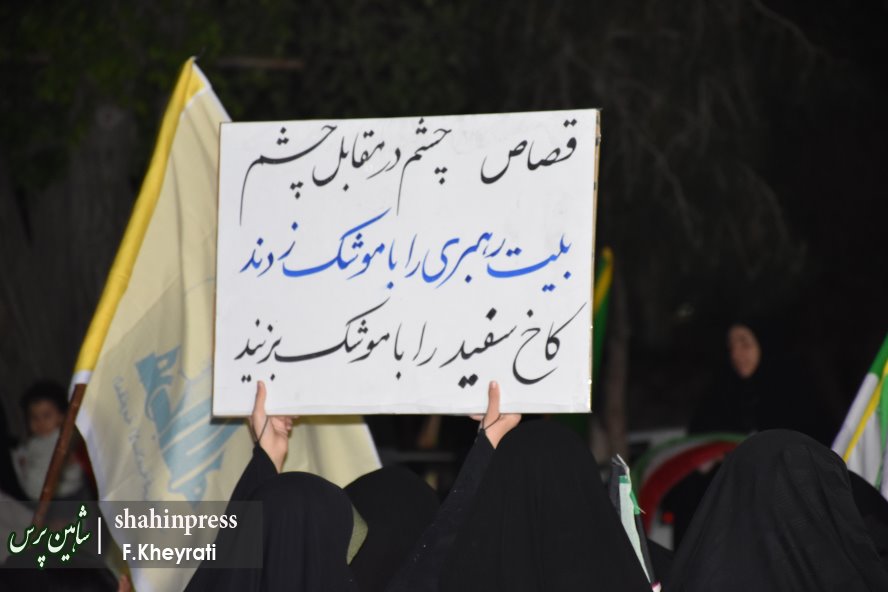 قصاص چشم در مقابل چشم
بیت رهبری را با موشک زدند
کاخ سفید را با موشک بزنید
شاهین پرس
shahinpress
F.Kheyrati